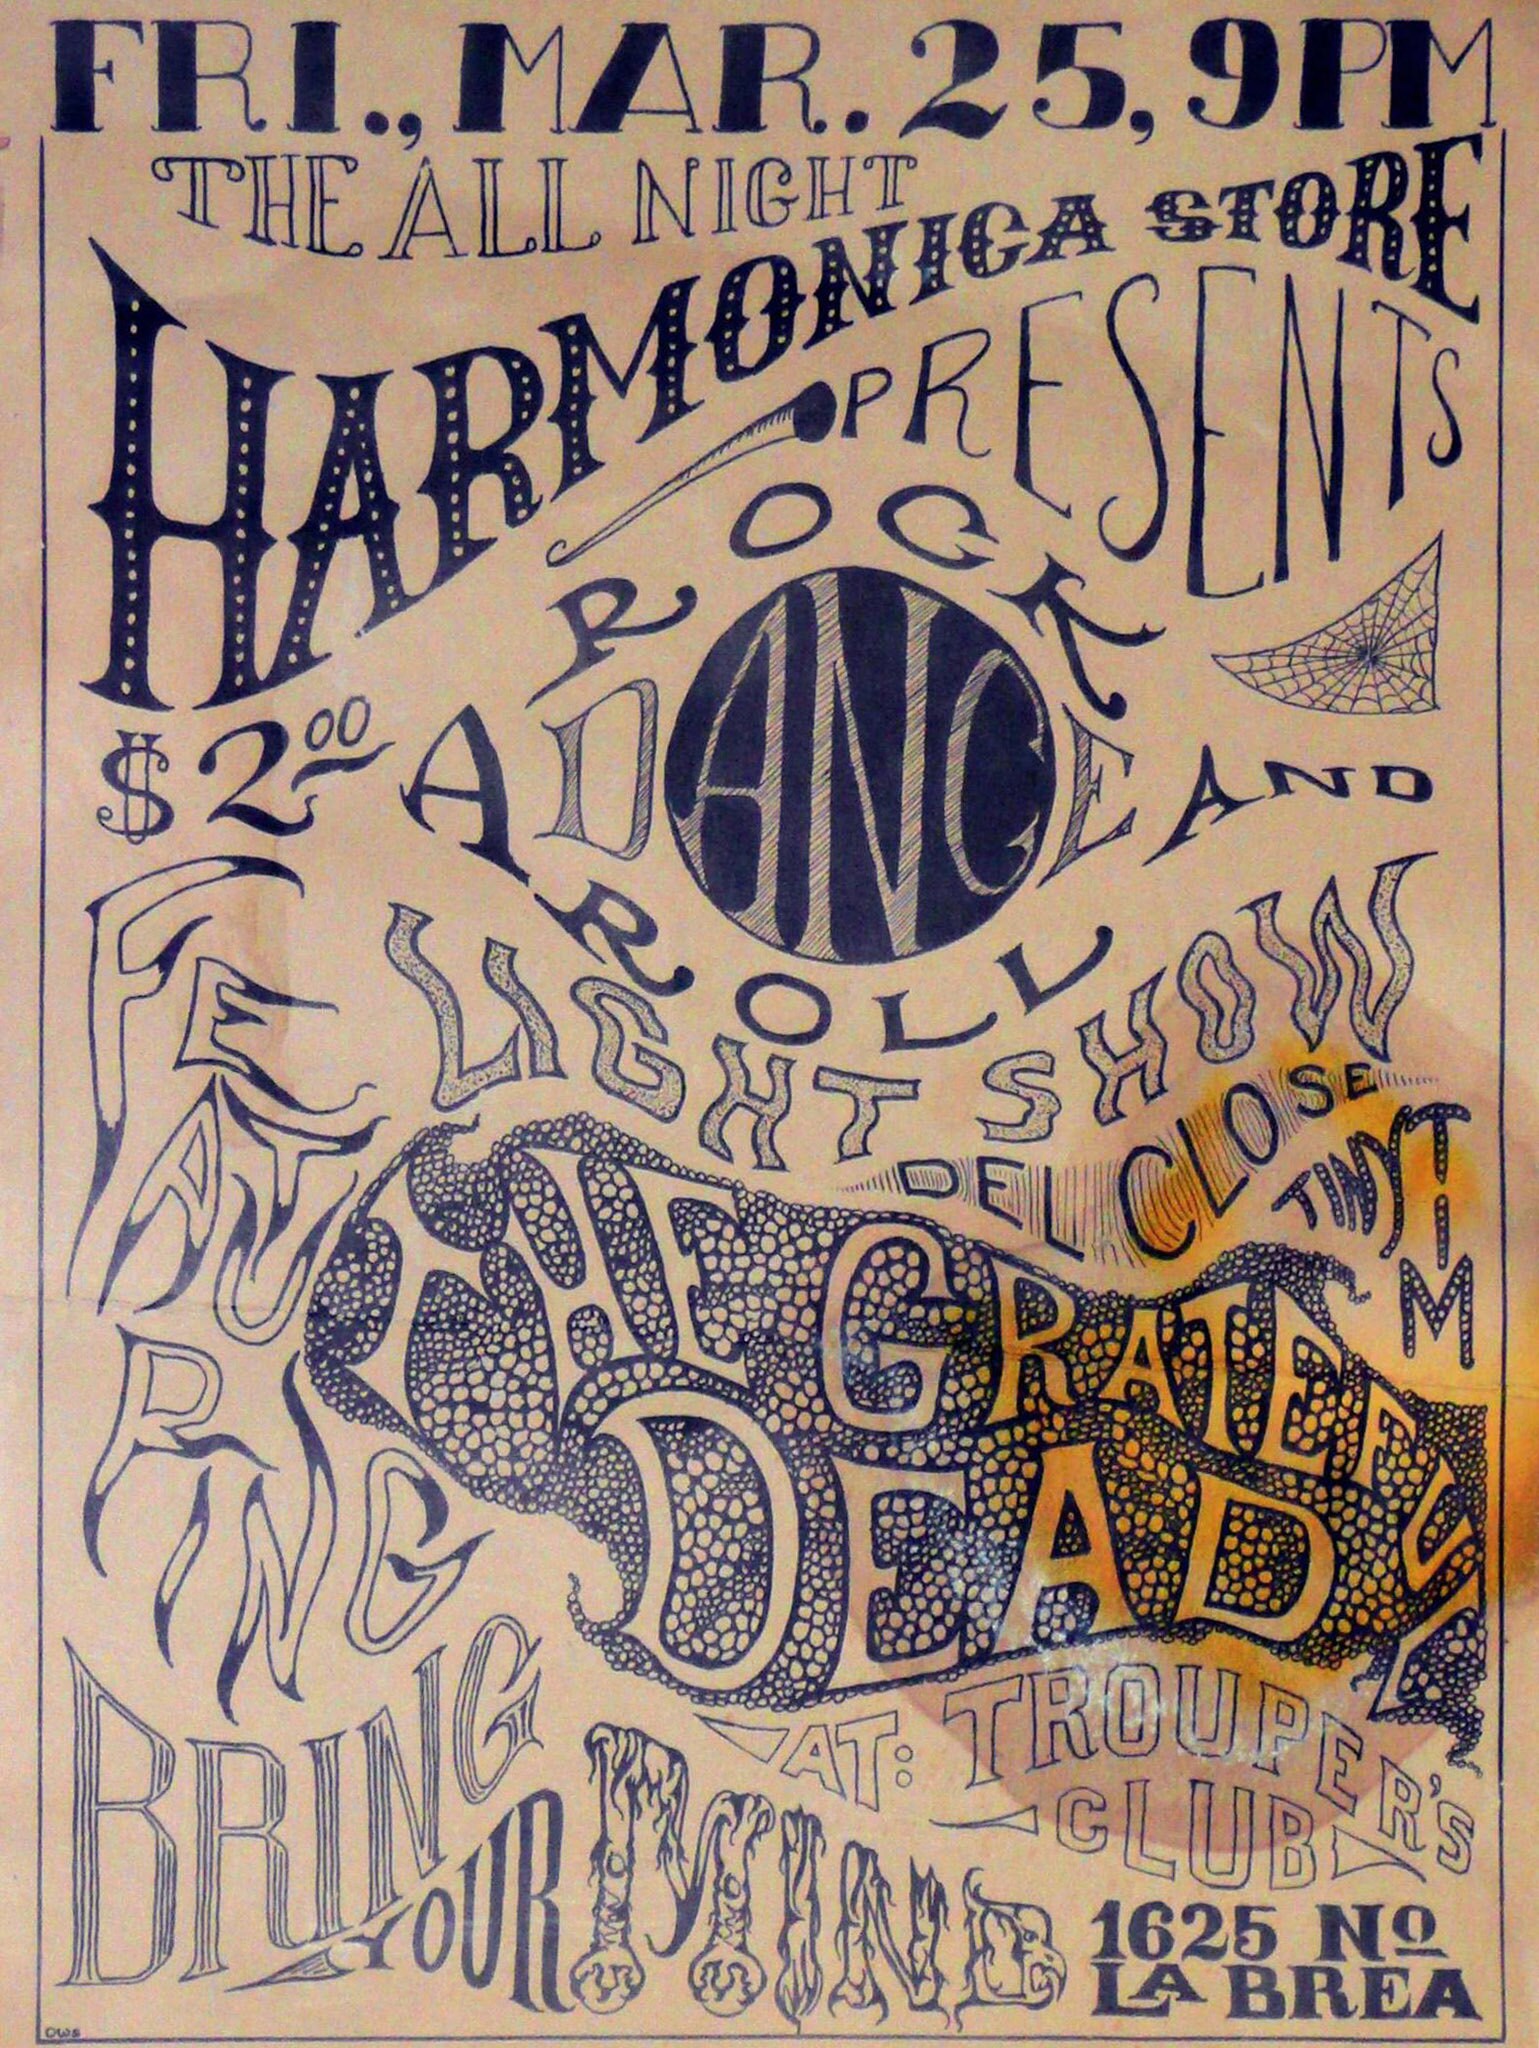 FRI., MAR. 25, 9PM
THE ALL NIGHT
HARMONICA STORE
PRESENTS
ROCK
A DANCE AND
ROLL
$2.00
LIGHT SHOW
FEATURING
DEL CLOSE
TINY TIM
THE GRATEFUL
DEAD
AT: TROUPER'S
CLUB
BRING
YOUR MIND
1625 No
LA BREA
OWS